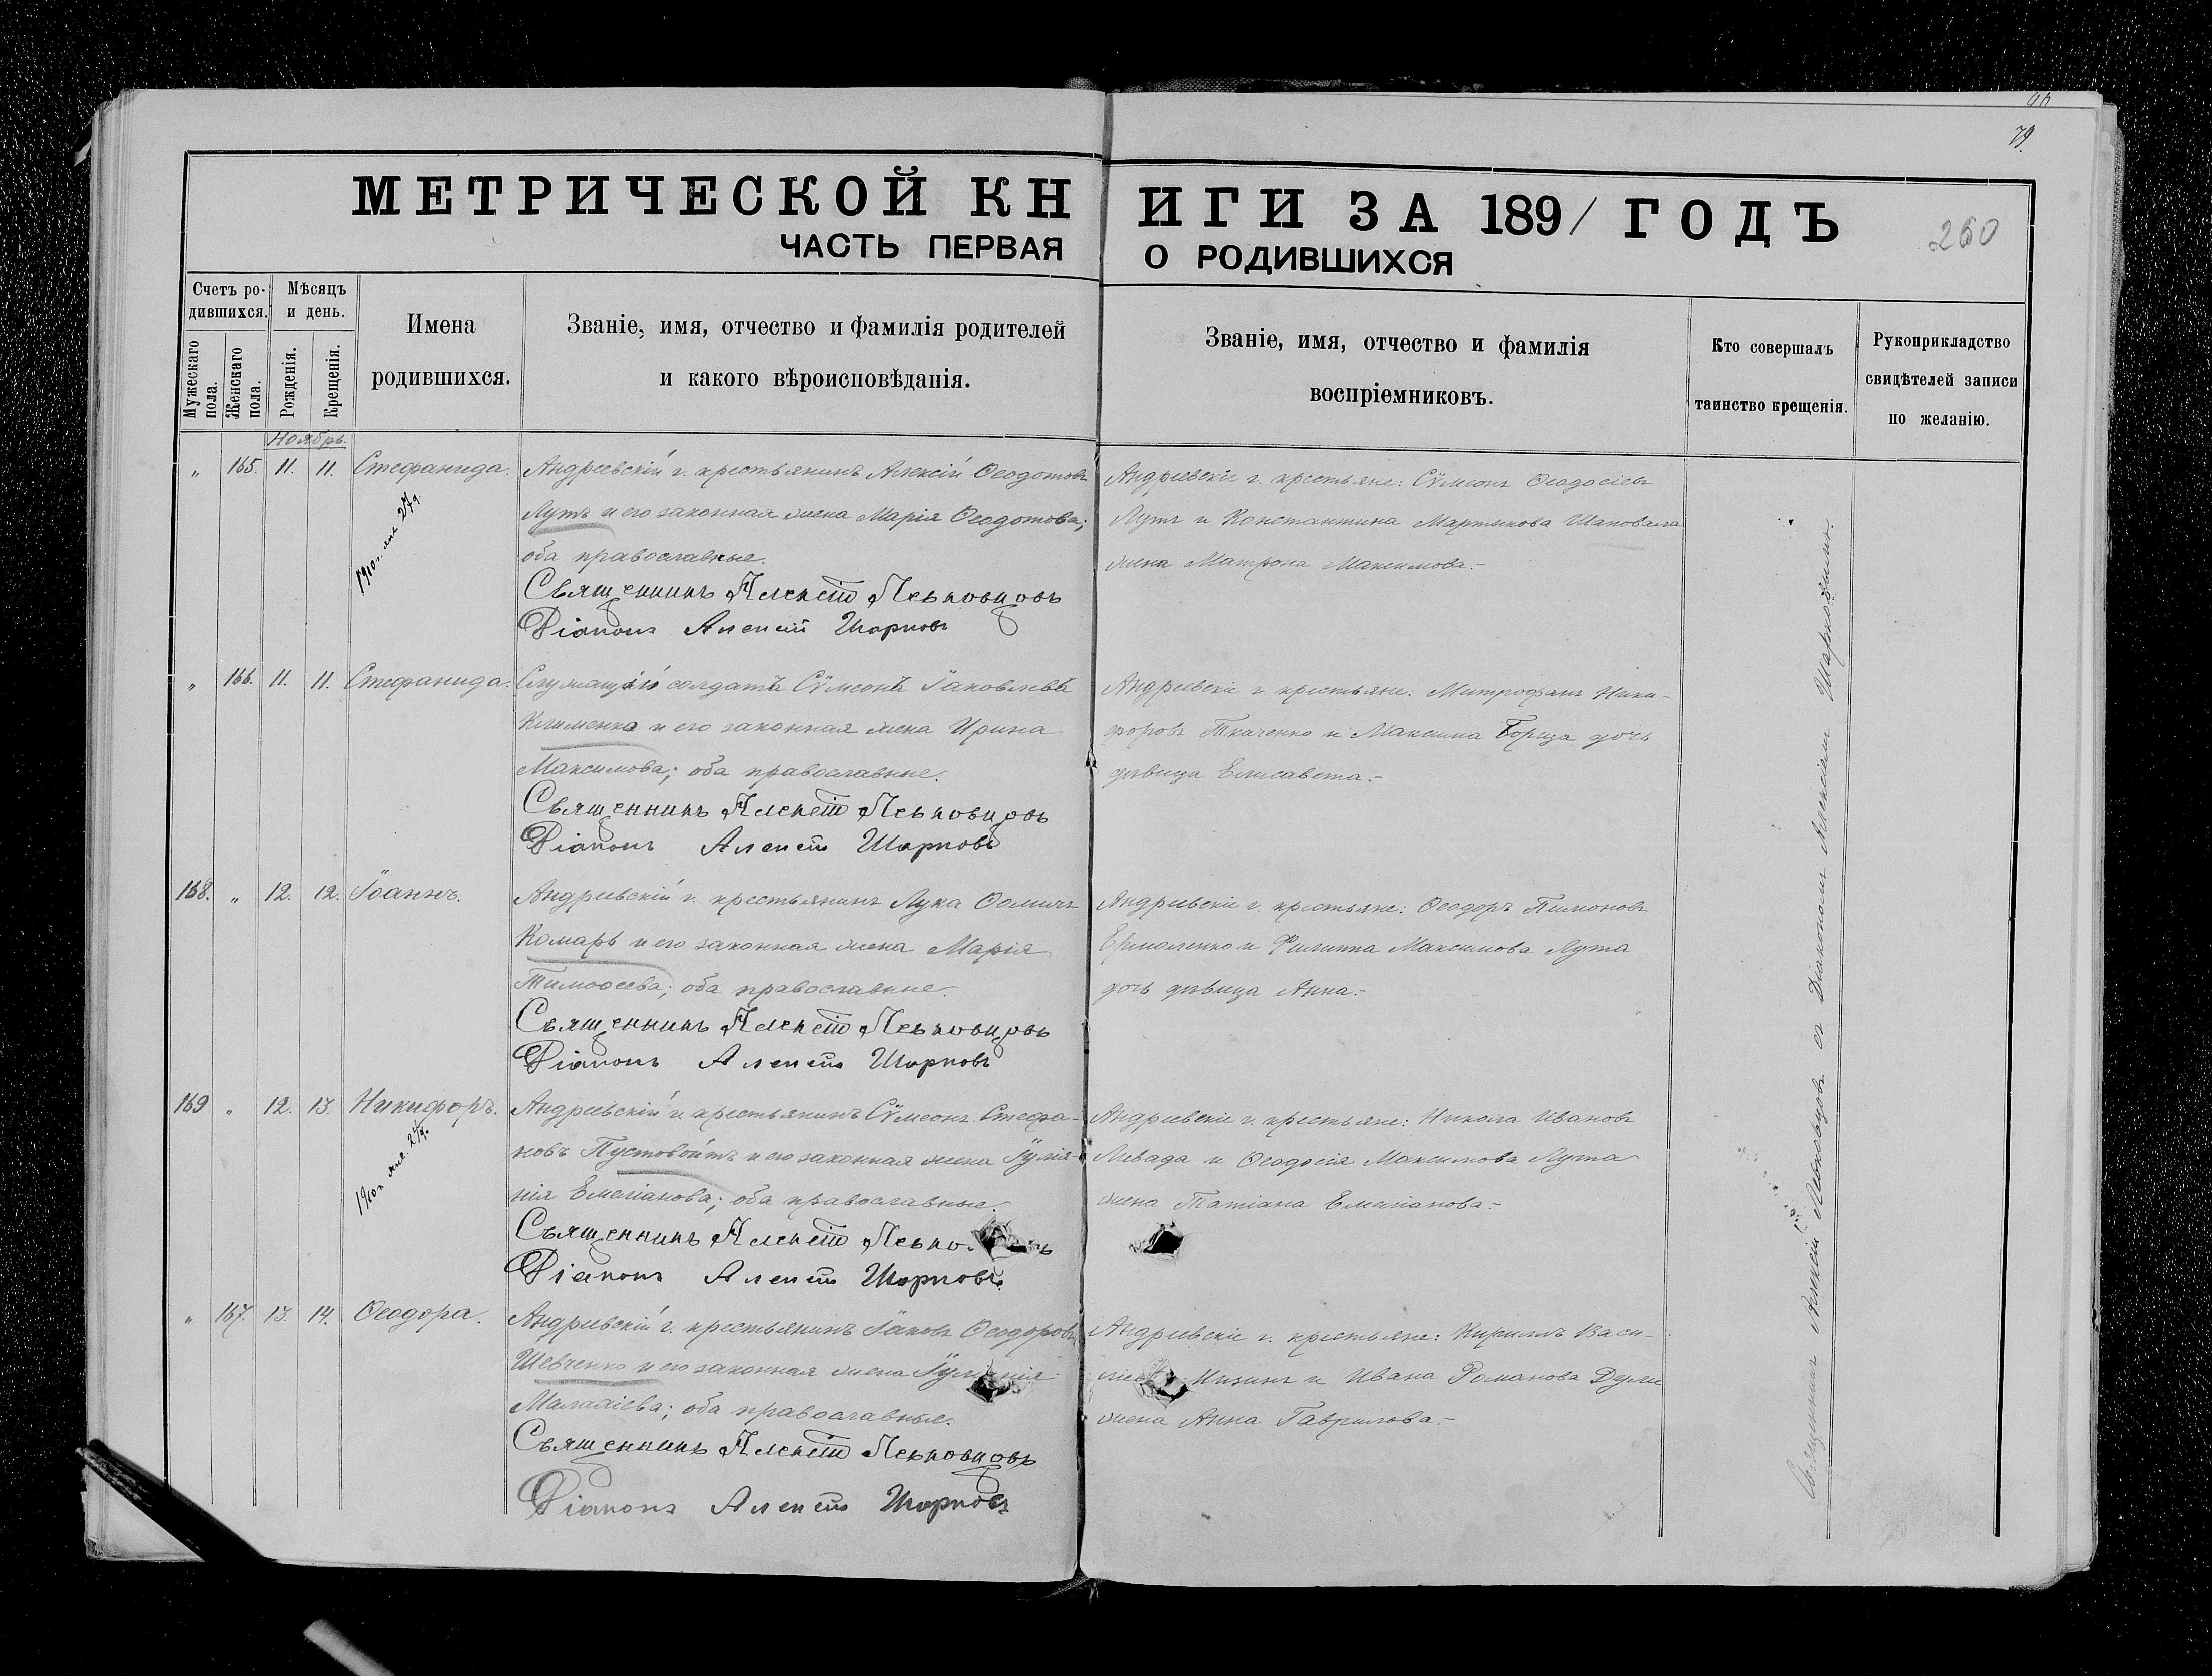 79.
МЕТРИЧЕСКОЙ КНИГИ ЗА 1891 ГОДЪ
260
ЧАСТЬ ПЕРВАЯ О РОДИВШИХСЯ
Счетъ родившихся.
Мужескаго пола.
Женскаго пола.
Мѣсяцъ и день.
Рожденія.
Крещенія.
Имена родившихся.
Званіе, имя, отчество и фамилія родителей
и какого вѣроисповѣданія.
Званіе, имя, отчество и фамилія
воспріемниковъ.
Кто совершалъ
таинство крещенія.
Рукоприкладство
свидѣтелей записи
по желанію.
Ноябрь.
„ 165. 11. 11. Стефанида.
Андреевскій г. крестьянинъ Алексій Ѳеодотовъ
Лутъ и его законная жена Марія Ѳеодотова;
оба православные.
Священникъ Алексій Левковцовъ
Діаконъ Алексій Шарковъ
Андреевскіе г. крестьяне: Сѵмеонъ Ѳеодосіевъ
Лутъ и Константина Мартынова Шаповала
жена Матрона Максимова.-
„ 166. 11. 11. Стефанида.
Служащій солдатъ Сѵмеонъ Іаковлевъ
Клименко и его законная жена Ирина
Максимова; оба православные.
Священникъ Алексій Левковцовъ
Діаконъ Алексій Шарковъ
Андреевскіе г. крестьяне: Митрофанъ Ники-
форовъ Ткаченко и Максима Борща дочь
дѣвица Елисавета.-
168. „ 12. 12. Іоаннъ.
Андреевскій г. крестьянинъ Лука Ѳомичъ
Комаръ и его законная жена Марія
Тимоѳеева; оба православные.
Священникъ Алексій Левковцовъ
Діаконъ Алексій Шарковъ
Андреевскіе г. крестьяне: Ѳеодоръ Пимоновъ
Ермоленко и Филиппа Максимова Лута
дочь дѣвица Анна.-
169 „ 12. 13. Никифоръ.
Андреевскій г. крестьянинъ Сѵмеонъ Стефа-
новъ Пустовойтъ и его законная жена Іуліа-
нія Емеліанова; оба православные.
Священникъ Алексій
Діаконъ Алексій Шарковъ
Андреевскіе г. крестьяне: Никола Ивановъ
Левада и Ѳеодосія Максимова Лута
жена Татіана Емеліанова.-
„ 167. 13. 14. Ѳеодора.
Андреевскій г. крестьянинъ Іаковъ Ѳеодоровъ
Шевченко и его законная жена Іуліанія
Малахіева; оба православные.
Священникъ Алексій Левковцовъ
Діаконъ Алексій Шарковъ
Андреевскіе г. крестьяне: Кириллъ Васи-
и Ивана Романова
жена Анна Гаврилова.-
Священникъ Алексій Левковцовъ съ Діакономъ Алексіемъ Шарковымъ.